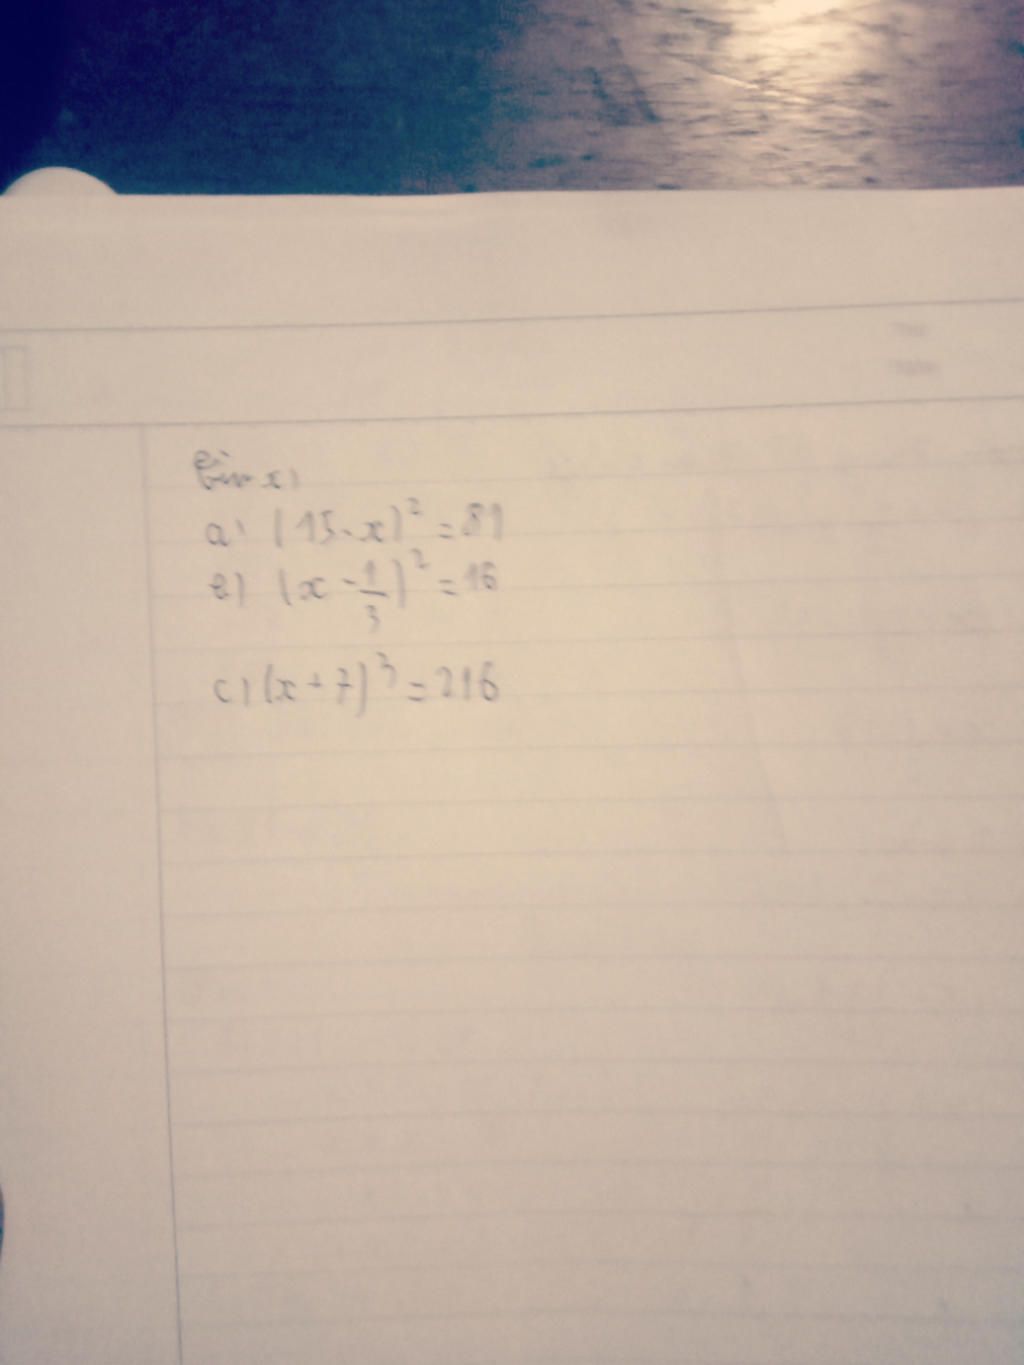 Tìm x:
a) (15-x)² = 81
b) (x - 1/3)² = 16
c) (x + 7)³ = 216